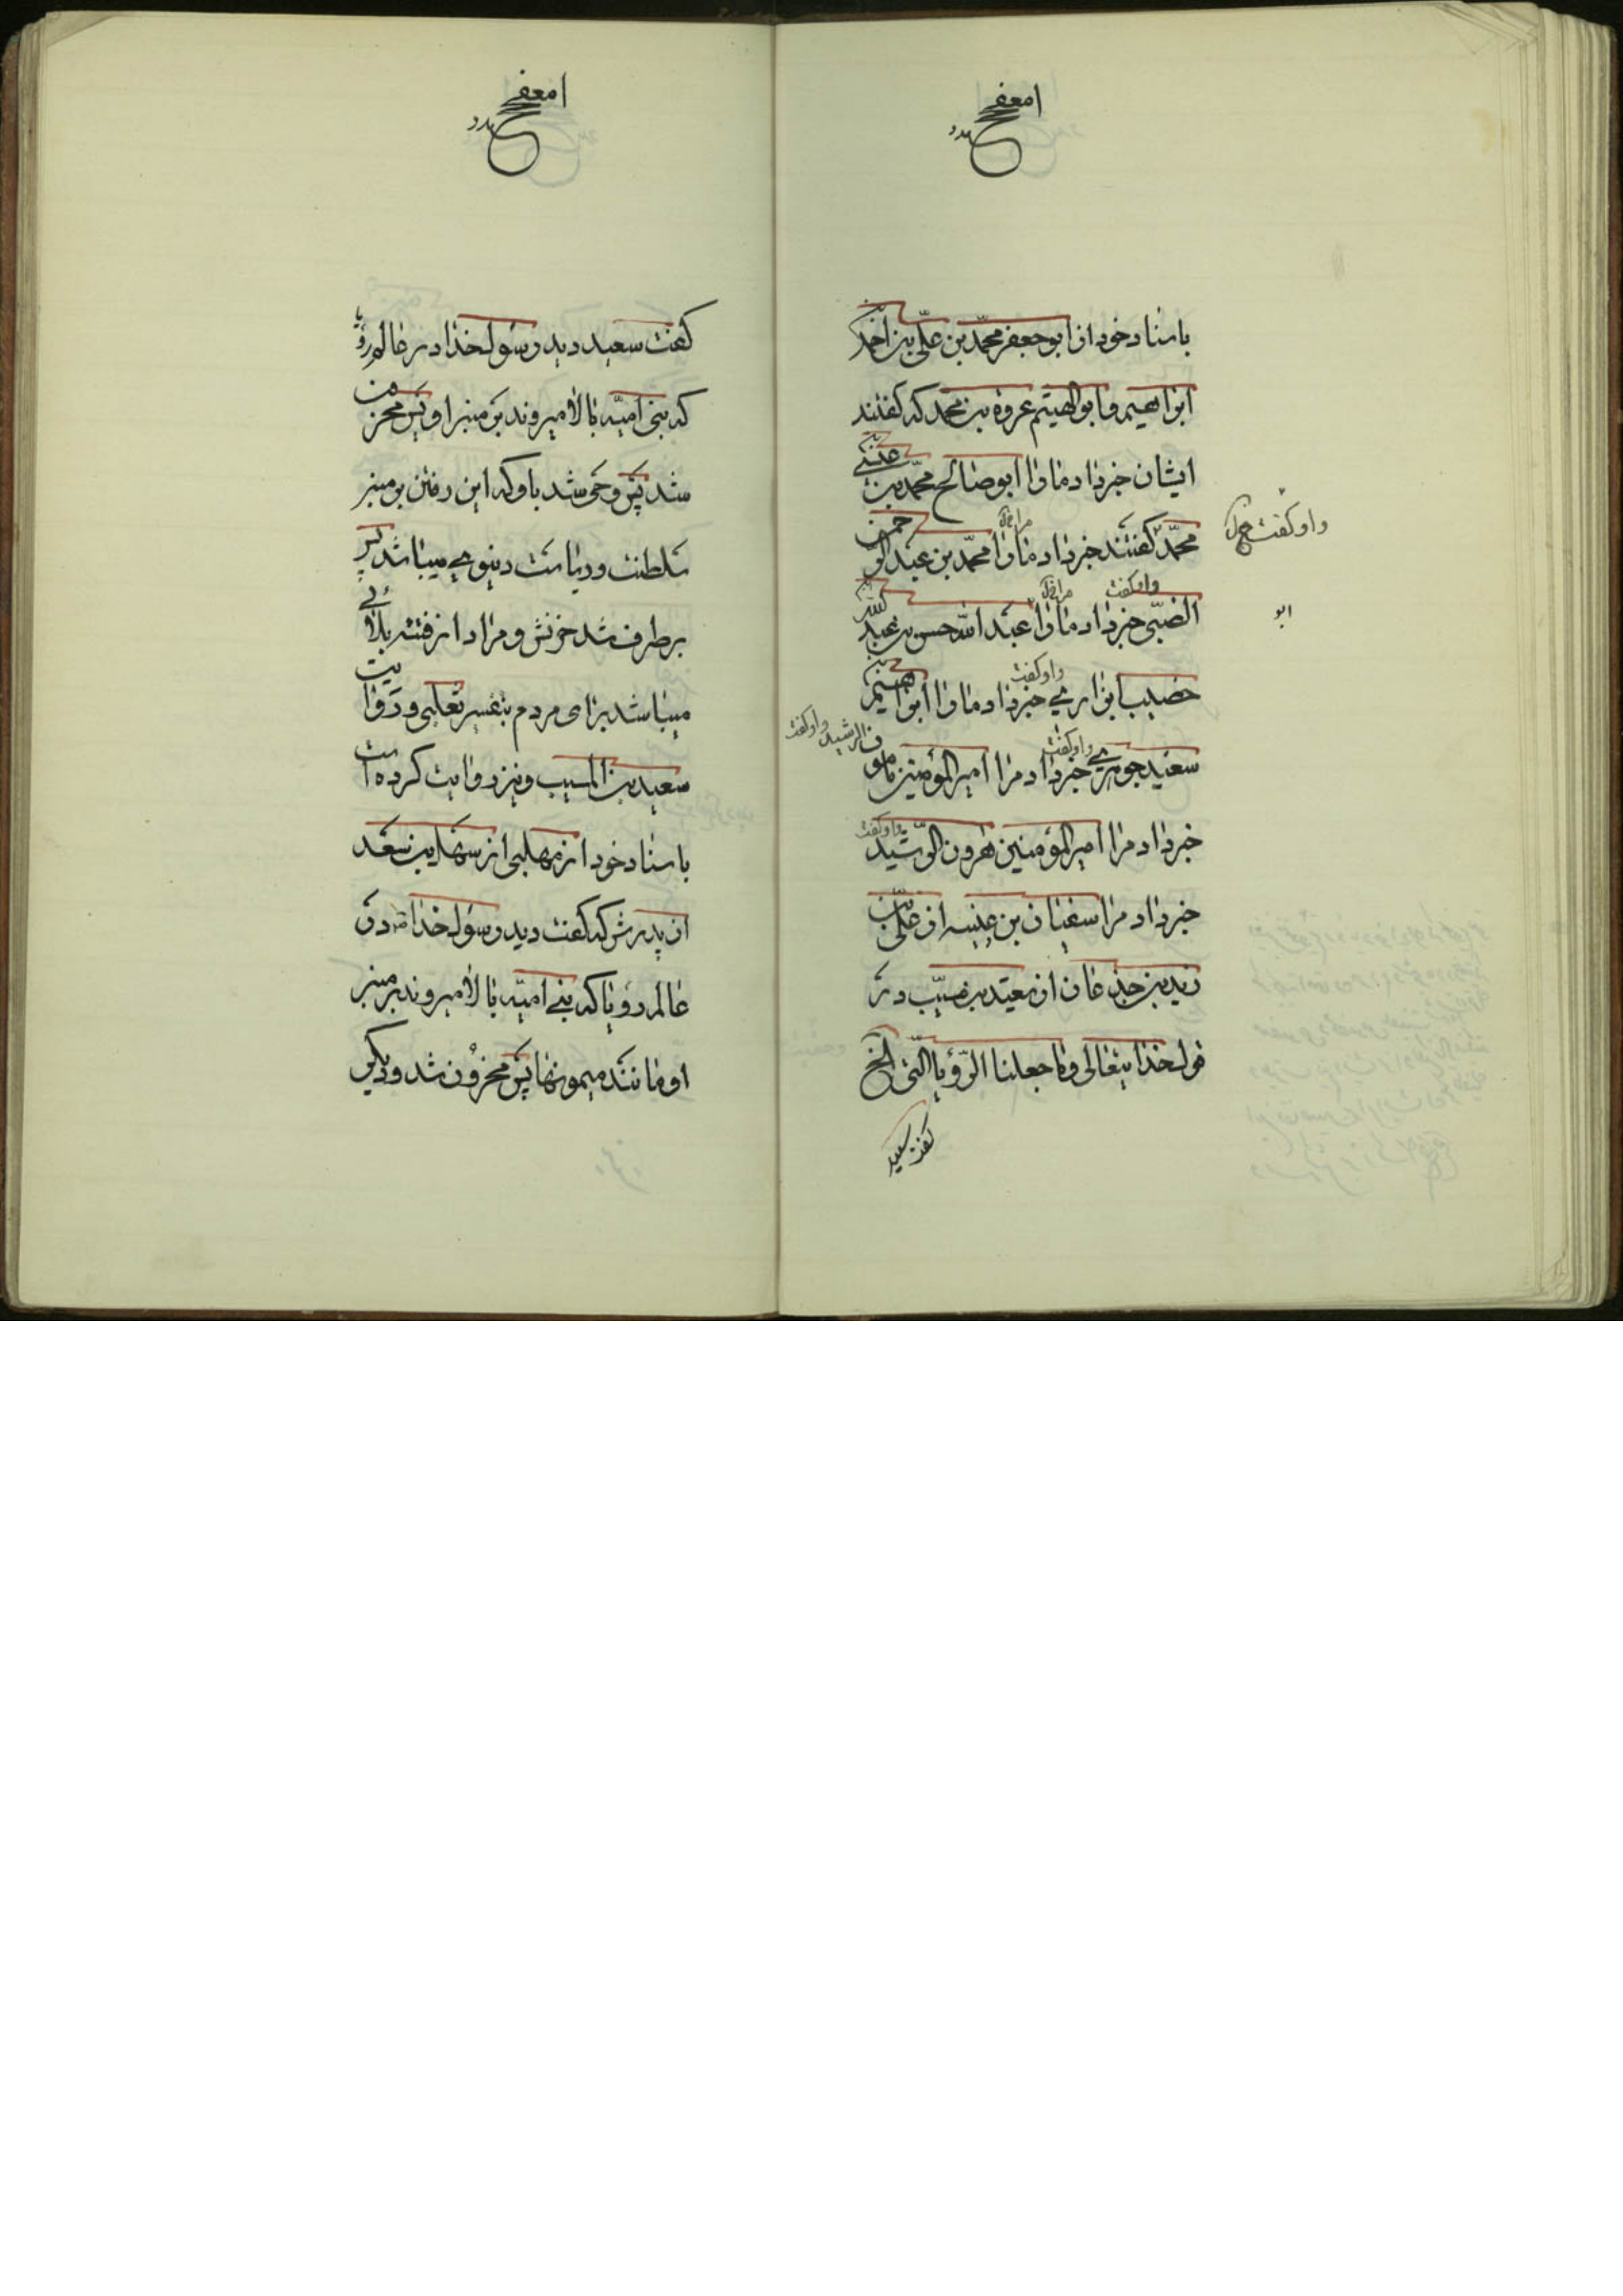 باسناد خود از ابو جعفر محمّد بن علّی بن احمد
ابراهیم و ابو الهیثم عروة بن محمد که گفتند
ایشان خبر داد ما را ابو صالح محمّد بن
محمّد گفتند خبر داد ما را محمّد بن عبد الرّحمن
واو گفت
الضبّی خبر داد ما را عبد الله حسن بن عبد الله
واو گفت
ابو
واو گفت
خصیب ابوارمی خبر داد ما را ابراهیم بن
واو گفت
سعید جوهری خبر داد مرا امیر المؤمنین مامون الرشید واو گفت
خبر داد مرا امیر المؤمنین هرون الرّشید واو گفت
خبر داد مرا سفیان بن عنبسه از علّی بن
زید بن جذعان از سعید بن مسیّب در
قول خدایتعالی وما جعلنا الرّؤیا الّتی الخ
گفت سعید
گفت سعید دید رسول خدا در عالم رؤیا
که بنی امیّه بالا میروند بر منبر او پس محزون
شد پس وحی شد باو که این رفتن بر منبر
سلطنت و ریاست دنیوی میباشد پس
بر طرف شد حزنش و مراد از فتنه بلائی
میباشد برای مردم بتفسیر ثعلبی و روایت
سعید بن المسیب و نیز روایت کرده است
باسناد خود از مهلبی از سهل بن سعد
از پدرش که گفت دید رسول خدا در
عالم رؤیا که بنی امیّه بالا میروند بر منبر
او مانند میمونها پس محزون شد و دیگر